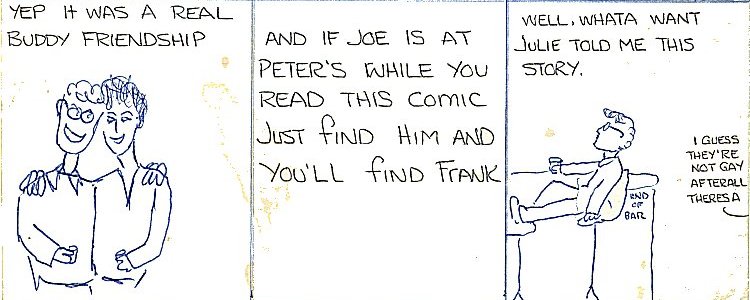 YEP IT WAS A REAL
BUDDY FRIENDSHIP
AND IF JOE IS AT
PETER'S WHILE YOU
READ THIS COMIC
JUST FIND HIM AND
YOU'LL FIND FRANK
WELL, WHATA WANT
JULIE TOLD ME THIS
STORY.
I GUESS
THEY'RE
NOT GAY
AFTERALL
THERESA
END
OF
BAR